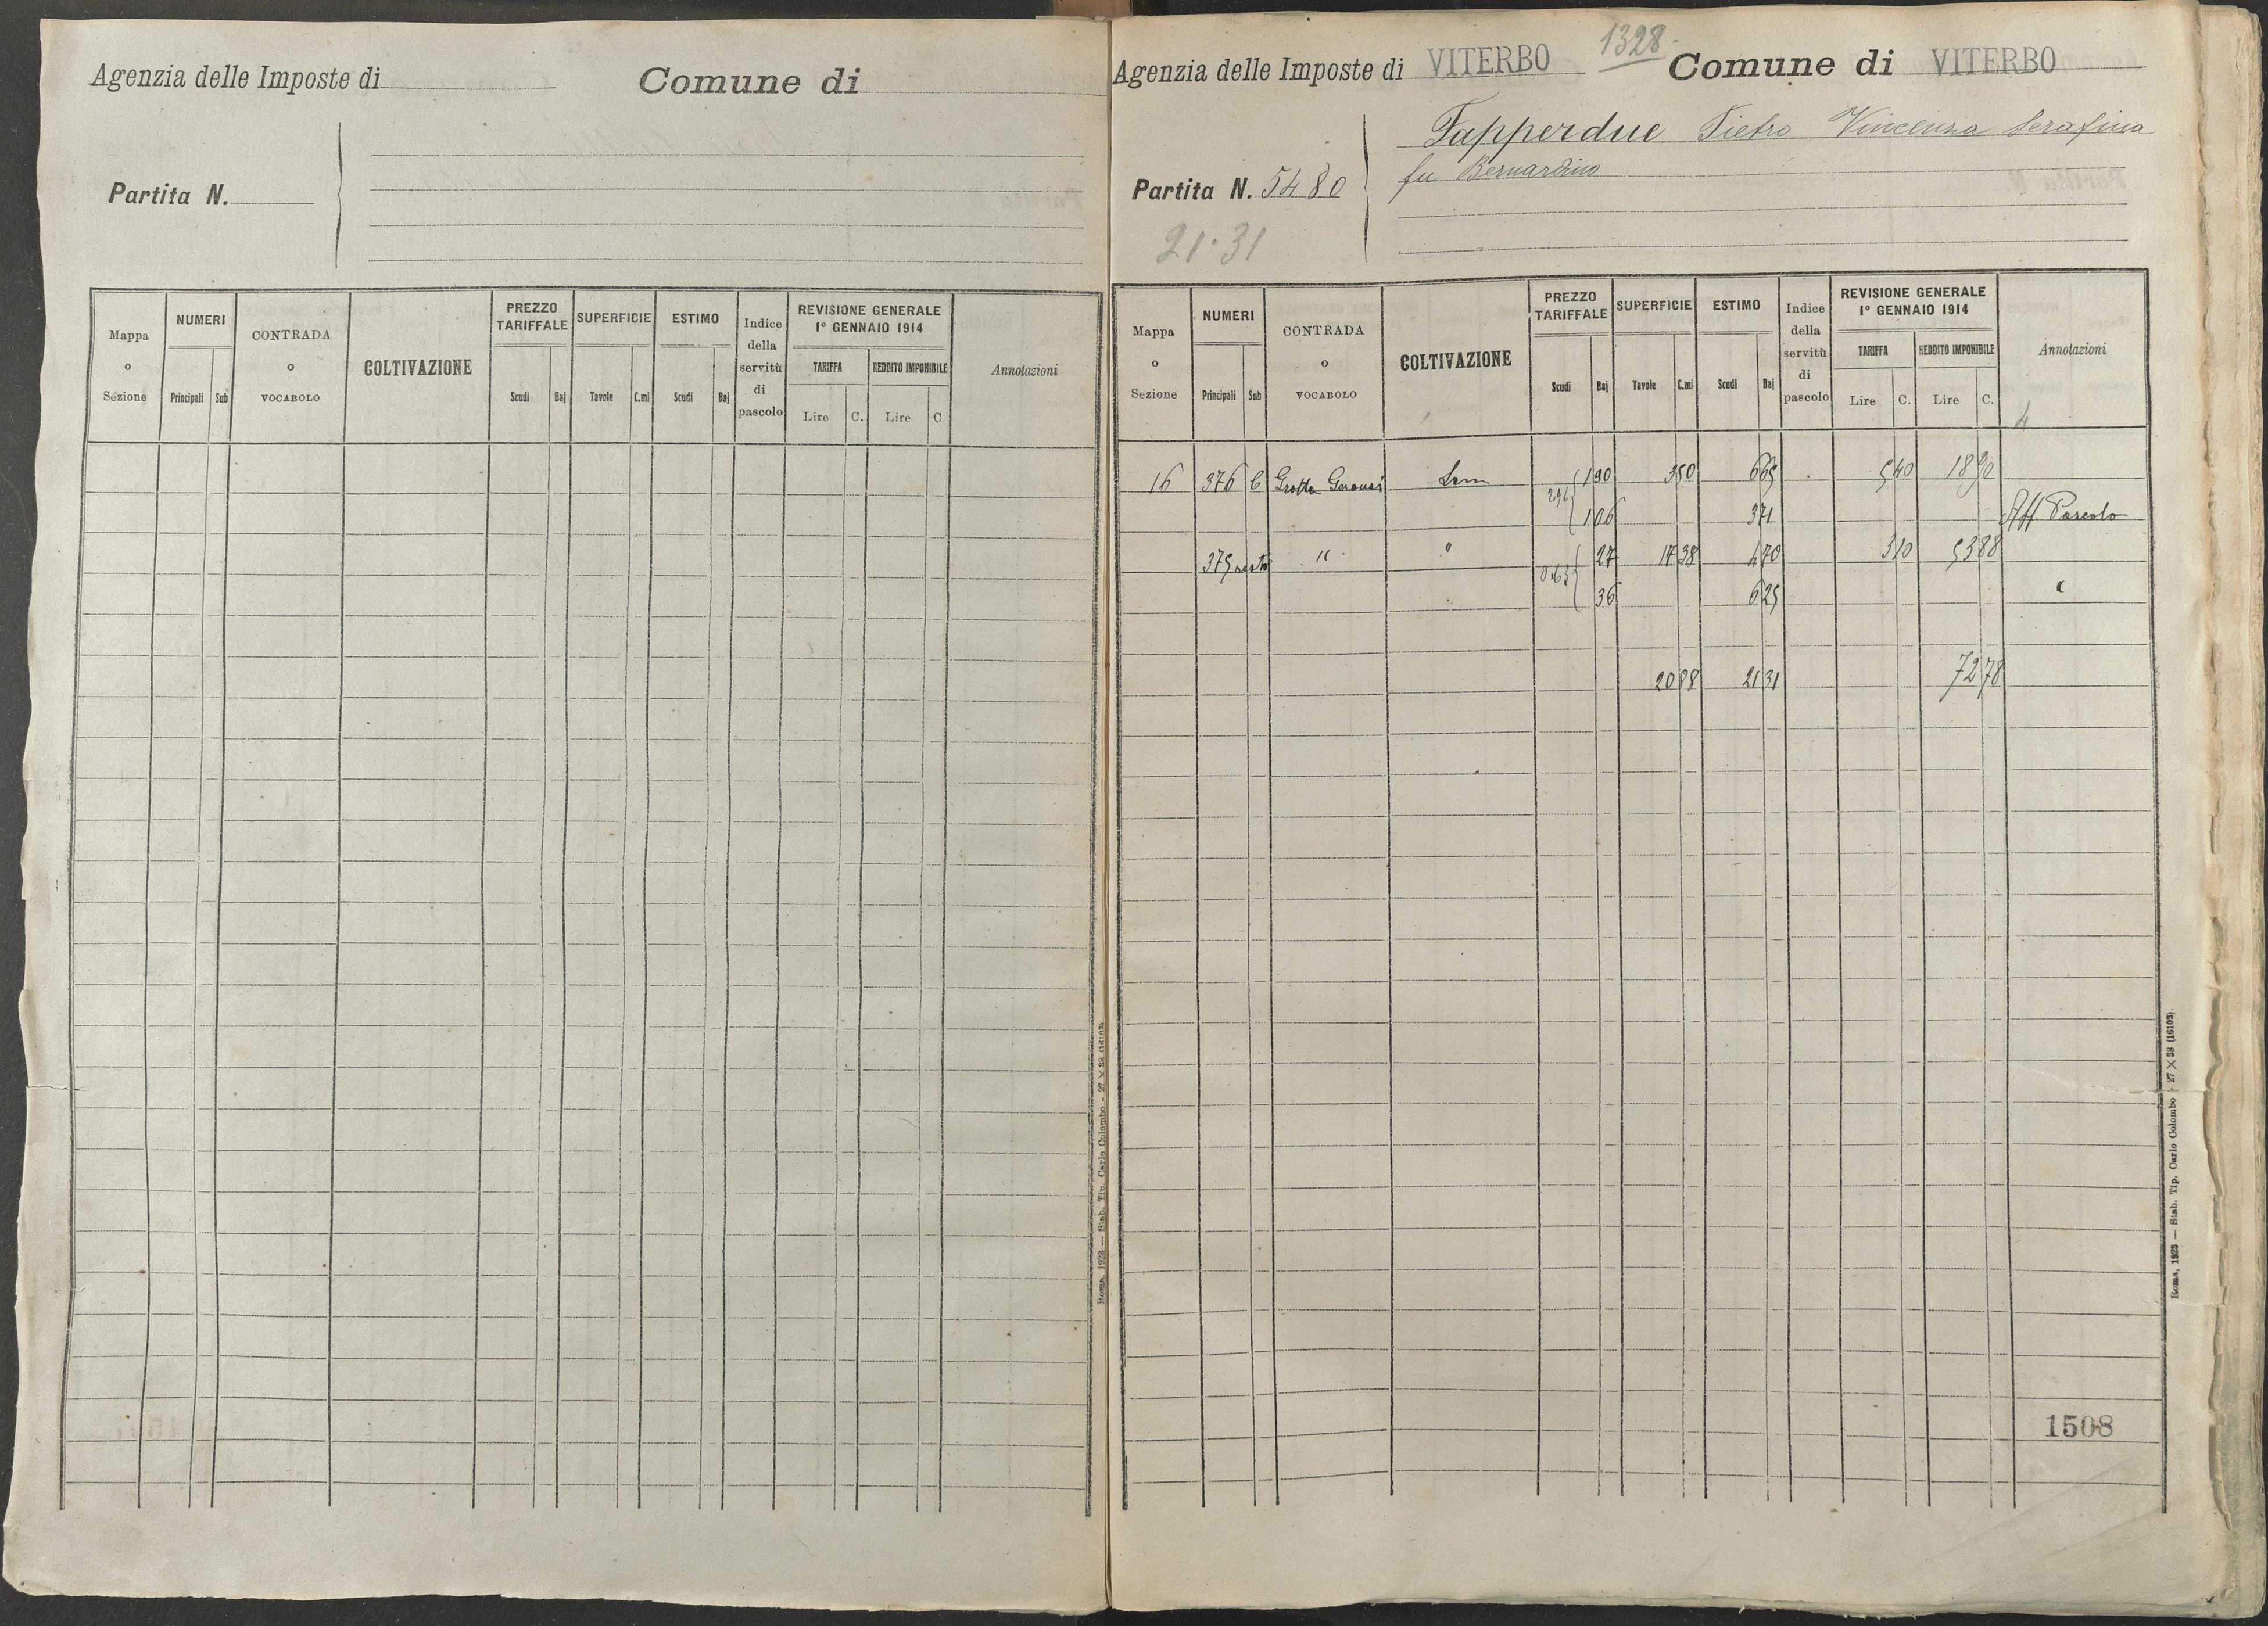 Agenzia delle Imposte di Comune di
Partita N.
Mappa o Sezione
NUMERI
Principali Sub
CONTRADA o VOCABOLO
COLTIVAZIONE
PREZZO TARIFFALE
Scudi Baj
SUPERFICIE
Tavole C.mi
ESTIMO
Scudi Baj
Indice della servitù di pascolo
REVISIONE GENERALE
1° GENNAIO 1914
TARIFFA REDDITO IMPONIBILE
Lire C. Lire C.
Annotazioni
Roma, 1923 — Stab. Tip. Carlo Colombo - 27 X 38 (16103)
1328
Agenzia delle Imposte di VITERBO Comune di VITERBO
Fapperdue Pietro Vincenza Serafina
fu Bernardino
Partita N. 5480
21.31
Mappa o Sezione
NUMERI
Principali Sub
CONTRADA o VOCABOLO
COLTIVAZIONE
PREZZO TARIFFALE
Scudi Baj
SUPERFICIE
Tavole C.mi
ESTIMO
Scudi Baj
Indice della servitù di pascolo
REVISIONE GENERALE
1° GENNAIO 1914
TARIFFA REDDITO IMPONIBILE
Lire C. Lire C.
Annotazioni
4
16 376 Grotta Sem 1 90 3 50 6 65 5 40 18 90
2,96
1 06 3 71 Aff Pascolo
375 resto " " 27 17 38 4 70 3 10 53 88
0.63
36 6 25 "
20 88 21 31 72 78
1508
Roma, 1923 — Stab. Tip. Carlo Colombo - 27 X 38 (16103)